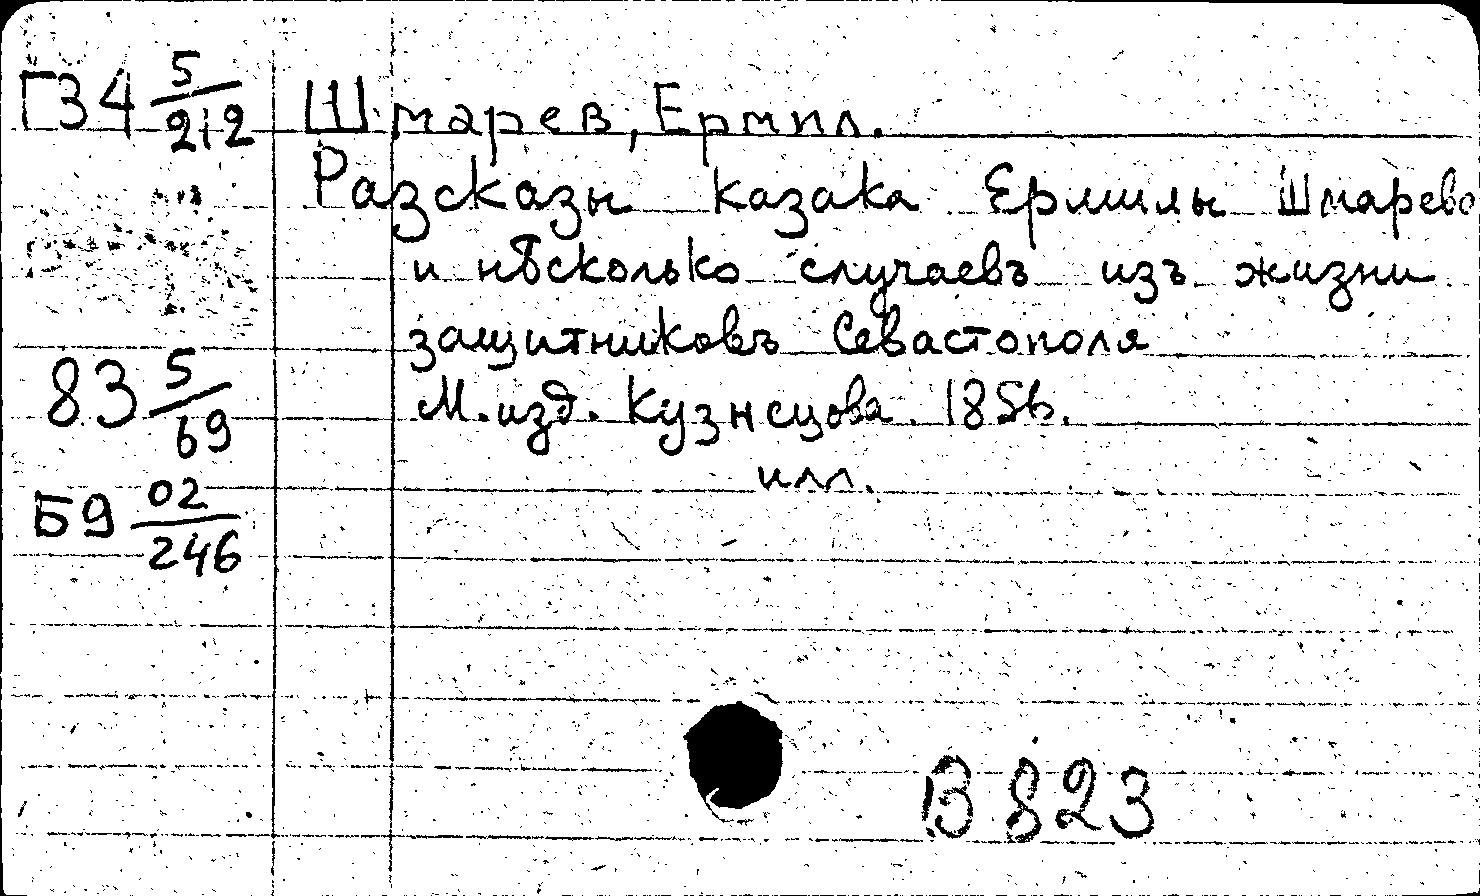 Г34 5/212 Шмарев, Ермил.
Разсказы казака Ермилы Шмарева
и нѣсколько случаевъ изъ жизни
защитниковъ Севастополя
83 5/69 М. изд. Кузнецова. 1856.
илл.
Б9 02/246
В 823